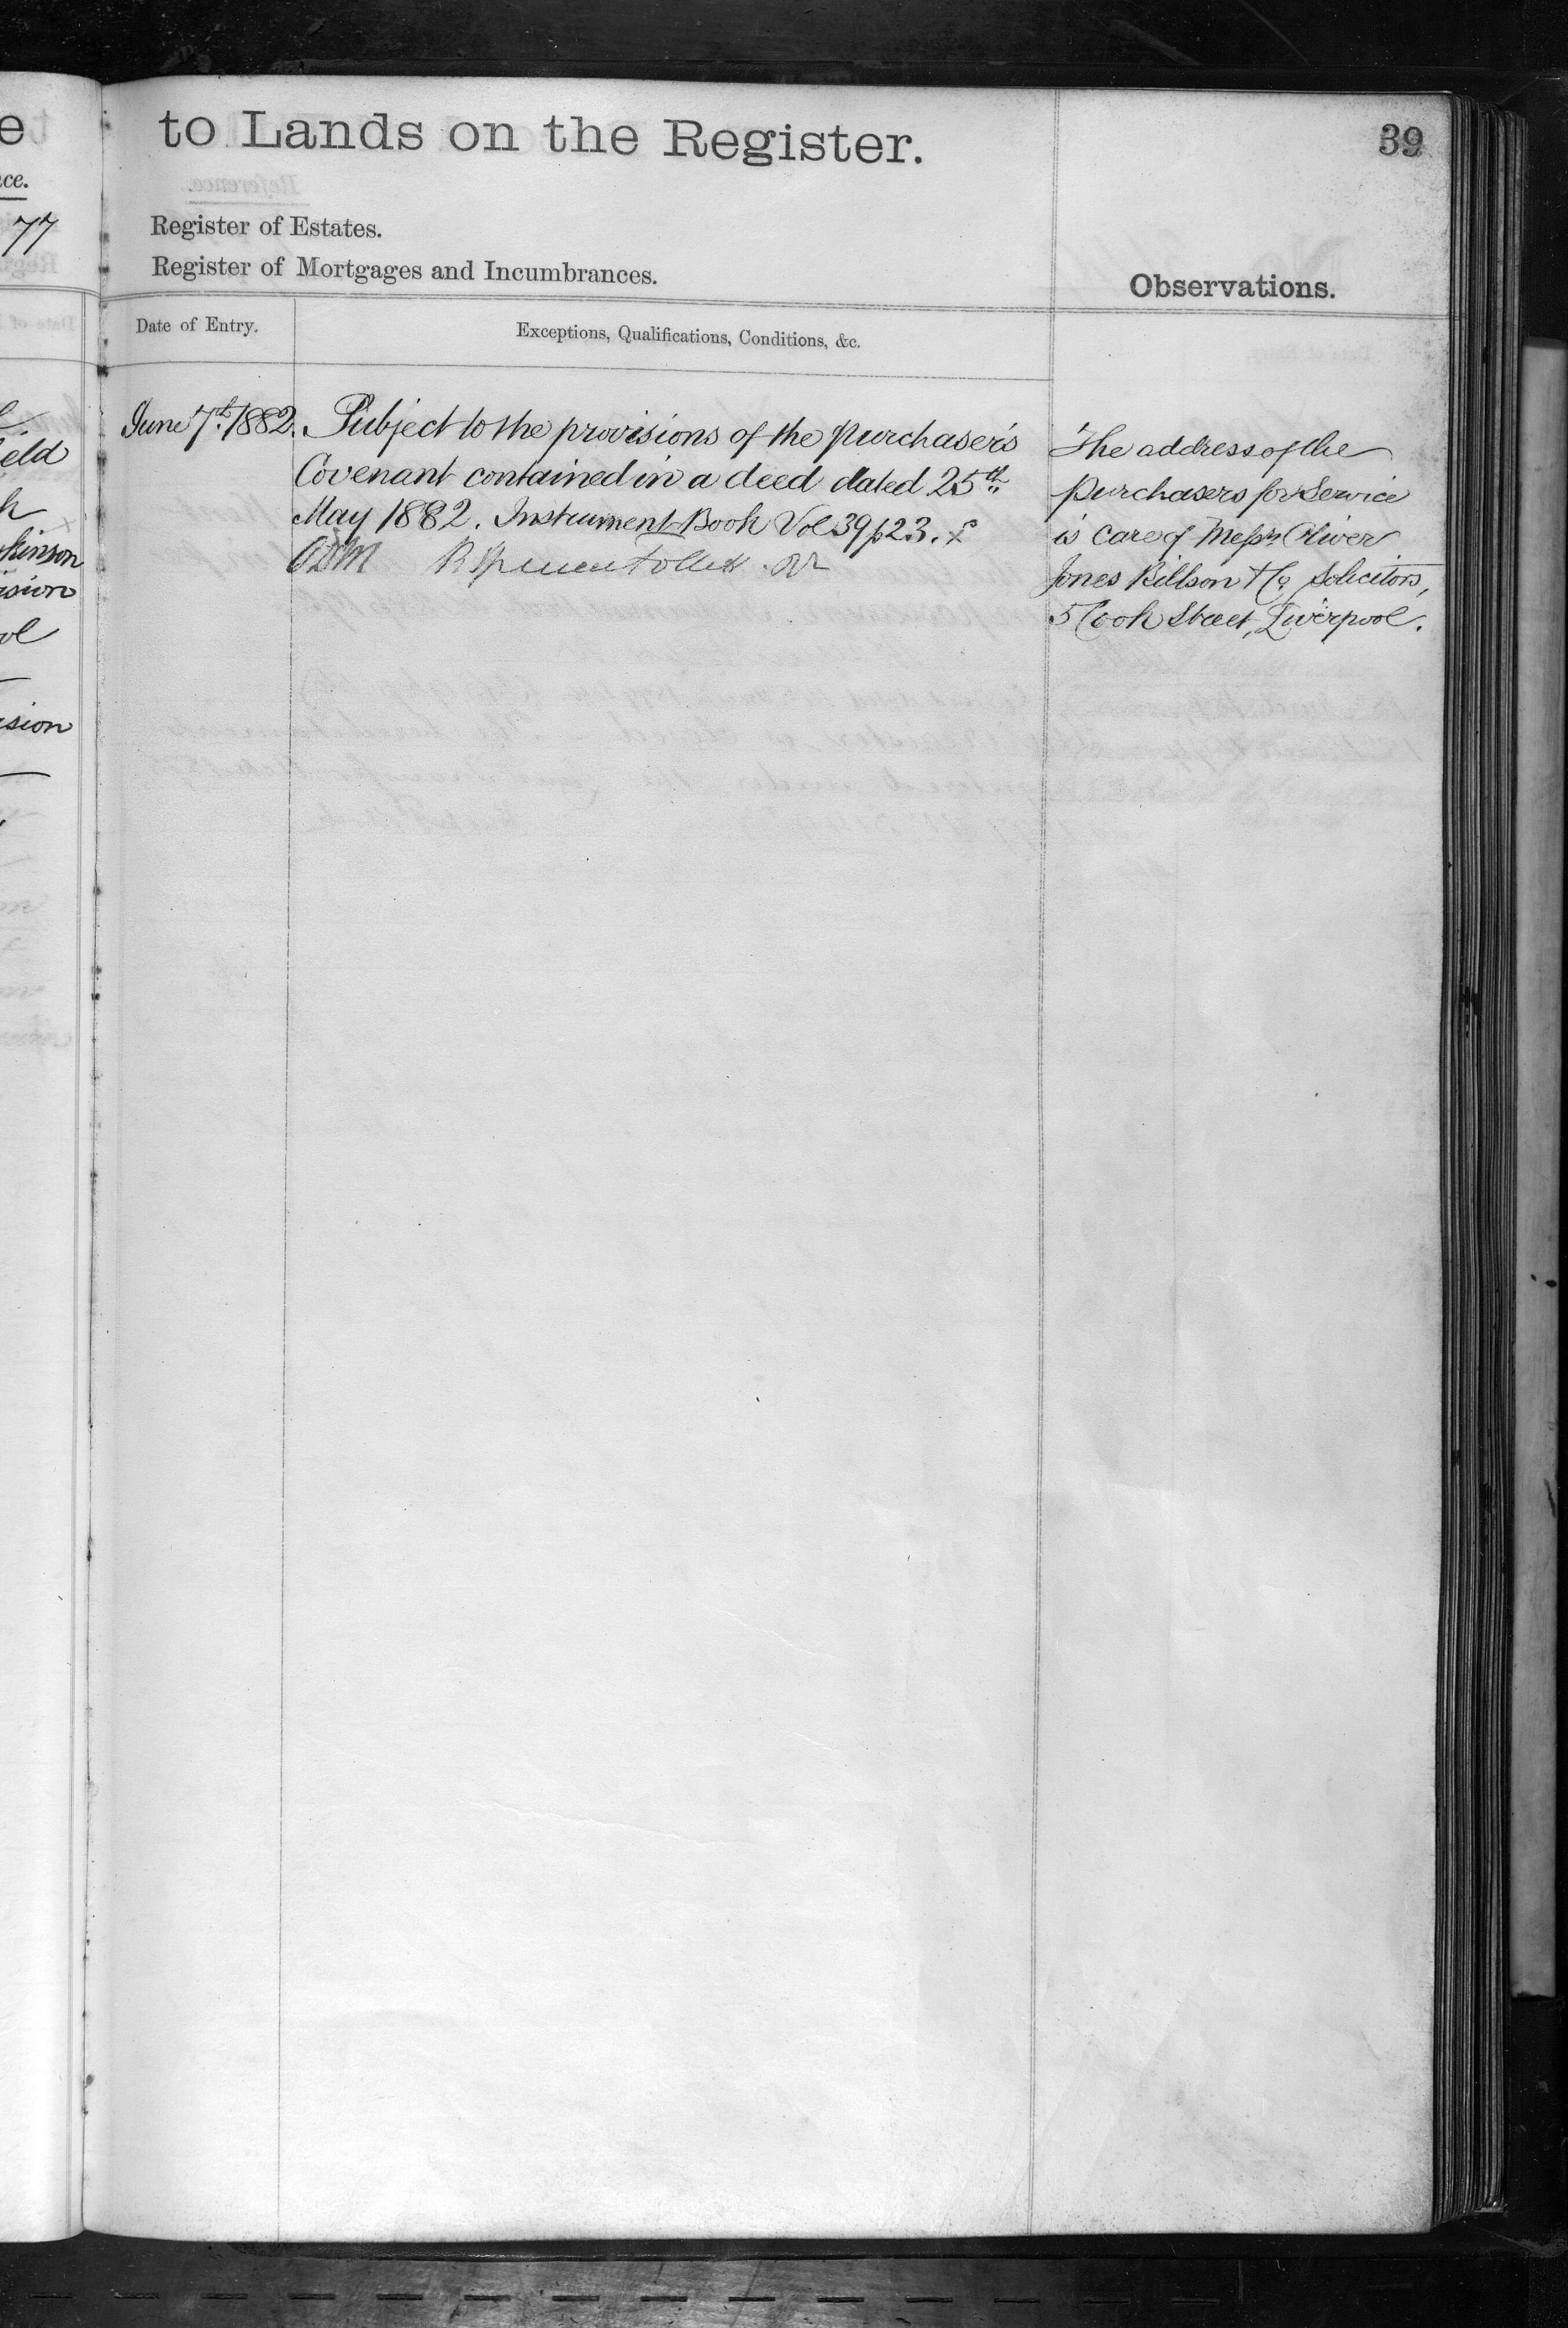 to Lands on the Register.
39
Register of Estates.
Register of Mortgages and Incumbrances.
Observations.
Date of Entry.
Exceptions, Qualifications, Conditions, &c.
June 7th 1882. Subject to the provisions of the purchaser's
Covenant contained in a deed dated 25th
May 1882. Instrument Book Vol 39 p 23.
The address of the
purchasers for Service
is care of Messrs Oliver
Jones Billson & Co Solicitors,
5 Cook Street, Liverpool.
ce.
77
eld
kinson
ision
ol
ision